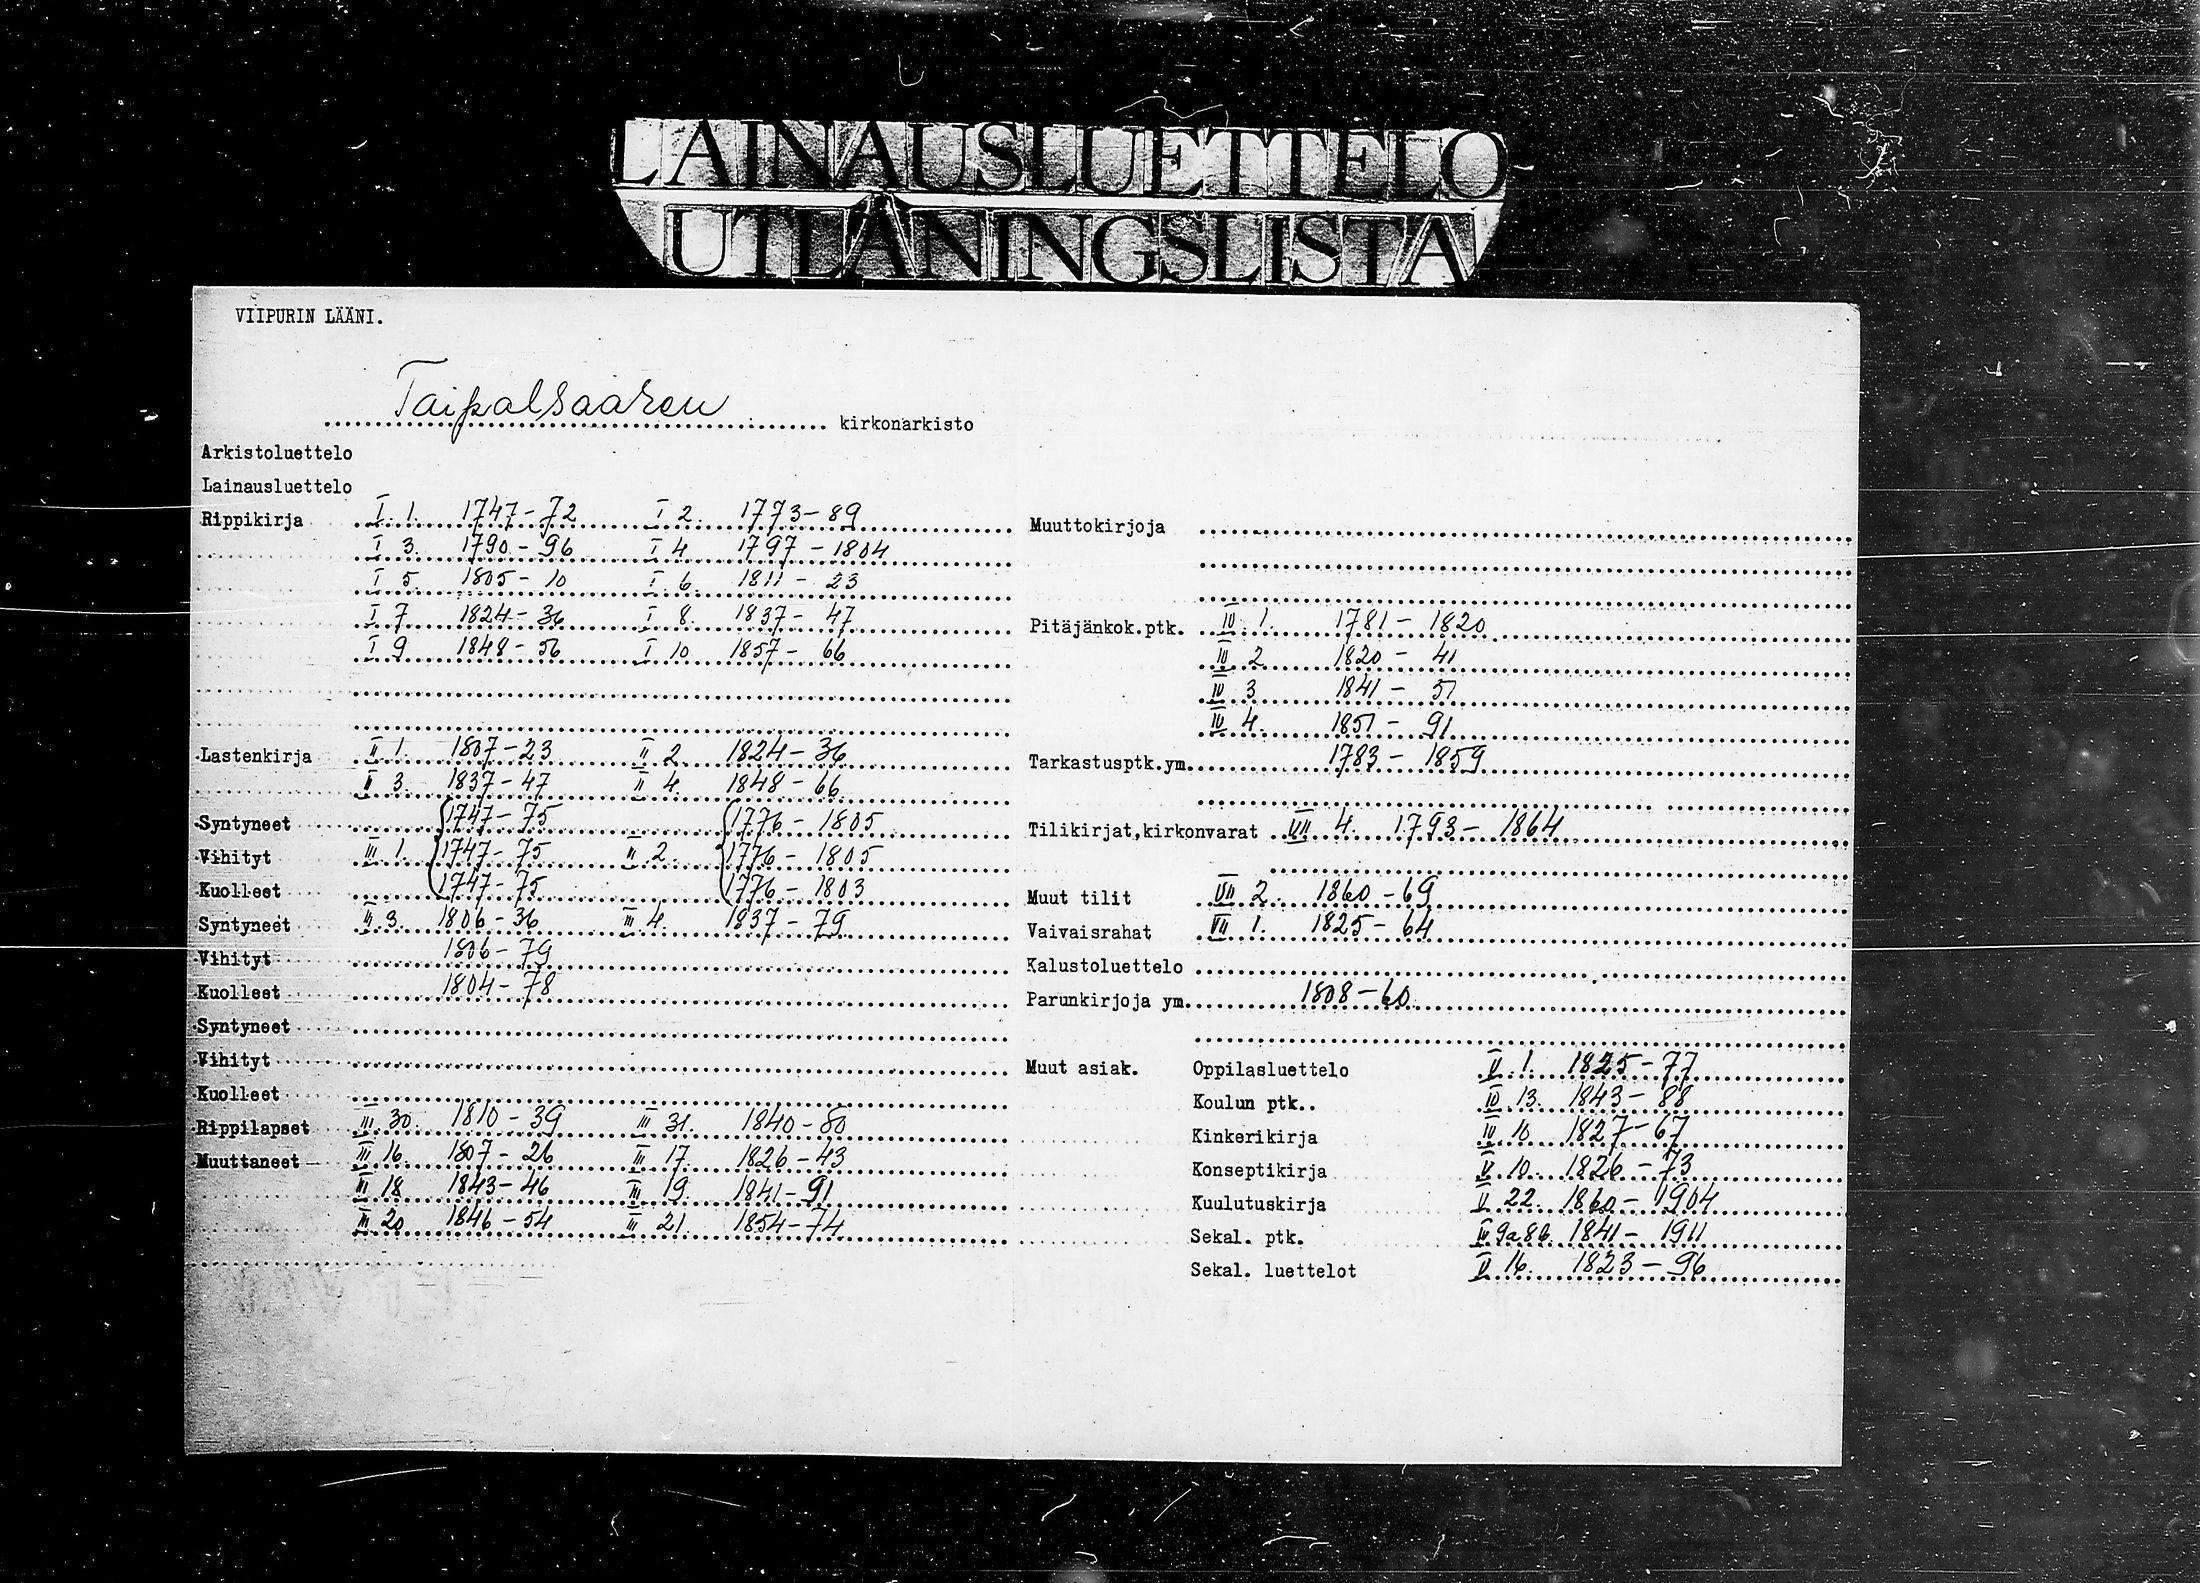 LAINAUSLUETTELO
UTLÅNINGSLISTA
VIIPURIN LÄÄNI.
Taipalsaaren kirkonarkisto
Arkistoluettelo
Lainausluettelo
Rippikirja I 1. 1747-72 I 2. 1773-89
I 3. 1790-96 I 4 1797-1804
I 5. 1805-10 I 6. 1811-23
I 7 1824-36 I 8. 1837-47
I 9 1848-56 I 10 1857-66
Lastenkirja II 1. 1807-23 II 2. 1824-36
II 3. 1837-47 II 4. 1848-66
Syntyneet 1747-75 1776-1805
Vihityt III 1. 1747-75 II 2. 1776-1805
Kuolleet 1747-75 1776-1803
Syntyneet III 3. 1806-36 III 4. 1837-79
Vihityt 1806-79
Kuolleet 1804-78
Syntyneet
Vihityt
Kuolleet
Rippilapset III 30. 1810-39 III 31. 1840-80
Muuttaneet III 16. 1807-26 III 17. 1826-43
III 18 1843-46 III 19. 1841-91
III 20 1846-54 III 21. 1854-74
Muuttokirjoja
Pitäjänkok.ptk. IV 1. 1781-1820
IV 2 1820-41
IV 3 1841-51
IV 4. 1851-91
Tarkastusptk.ym. 1783-1859
Tilikirjat,kirkonvarat VII 4. 1793-1864
Muut tilit VII 2. 1860-69
Vaivaisrahat VII 1. 1825-64
Kalustoluettelo
Parunkirjoja ym. 1808-60
Muut asiak. Oppilasluettelo V 1. 1825-77
Koulun ptk.. IV 13. 1843-88
Kinkerikirja IV 10 1827-67
Konseptikirja V 10. 1826-73
Kuulutuskirja V 22. 1860-1904
Sekal. ptk. IV 9a8b. 1841-1911
Sekal. luettelot V 16. 1823-96